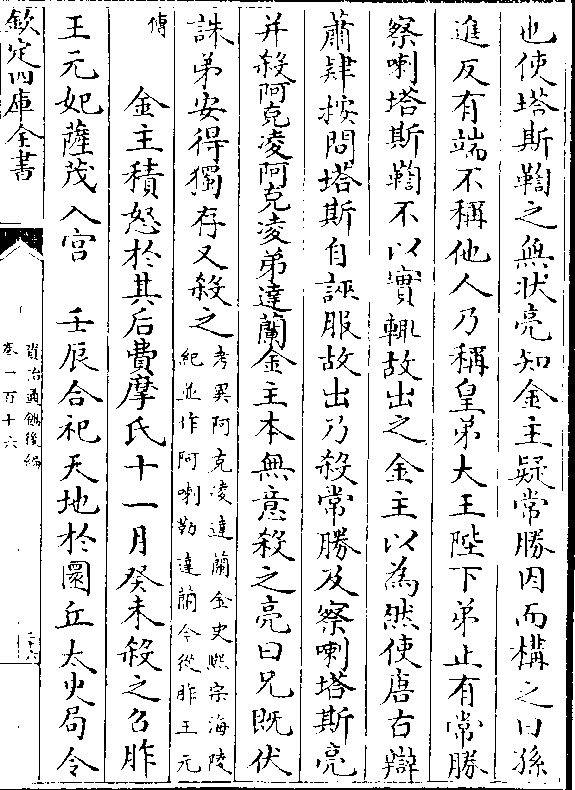 也使塔斯鞫之無狀亮知金主疑常勝因而構之曰孫
進反有端不稱他人乃稱皇弟大王陛下弟止有常勝
察喇塔斯鞫不以實輒故出之金主以為然使唐古辯
蕭肄按問塔斯自誣服故出乃殺常勝及察喇塔斯亮
并殺阿克凌阿克凌弟達蘭金主本無意殺之亮曰兄既伏
誅弟安得獨存又殺之考異阿克凌達蘭金史熙宗海陵紀並作阿喇勒達蘭今從胙王元
傳　金主積怒於其后費摩氏十一月癸未殺之召胙
王元妃薩茂入宮　壬辰合祀天地於圜丘太史局令
欽定四庫全書
資治通鑑後編
卷一百十六